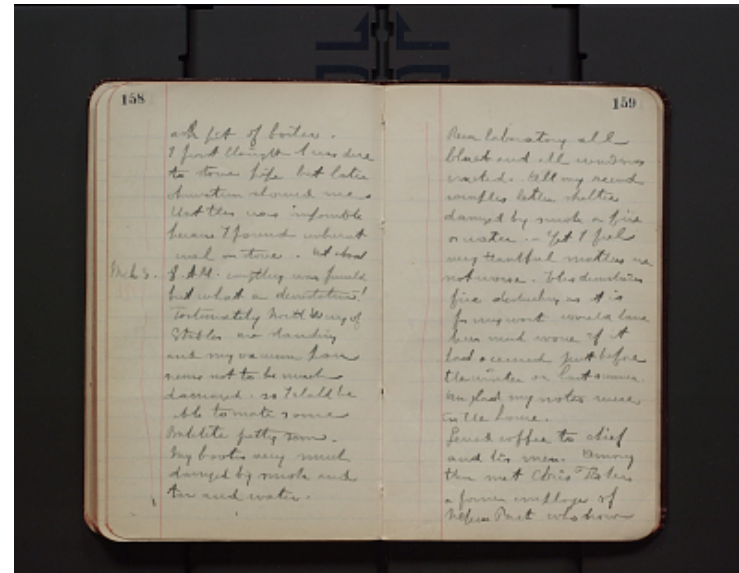 158
ash pit of boiler.
I first thought I was due
to stove pipe but later
observation showed me
that this was impossible
because I found unburnt
coal in stove. At about
March 3. 8 AM. everything was
but what a devastation!
Fortunately North Wing of
Stables are standing
and my vacuum pan
seems not to be much
damaged. so I shall be
able to make some
Bakelite pretty soon.
My books very much
damaged by smoke and
tar and water.
159
Rear laboratory all
black and all windows
cracked. All my
samples
damaged by smoke or fire
or water. - Yet I feel
very thankful matters are
not worse. This
fire disturbing as it is
for my work would have
been much worse if it
had occurred just before
the winter or last summer.
Am glad my notes were
in the house.
Served coffee to chief
and his men. Among
them met Chris
a former employee of
Nepera Park who